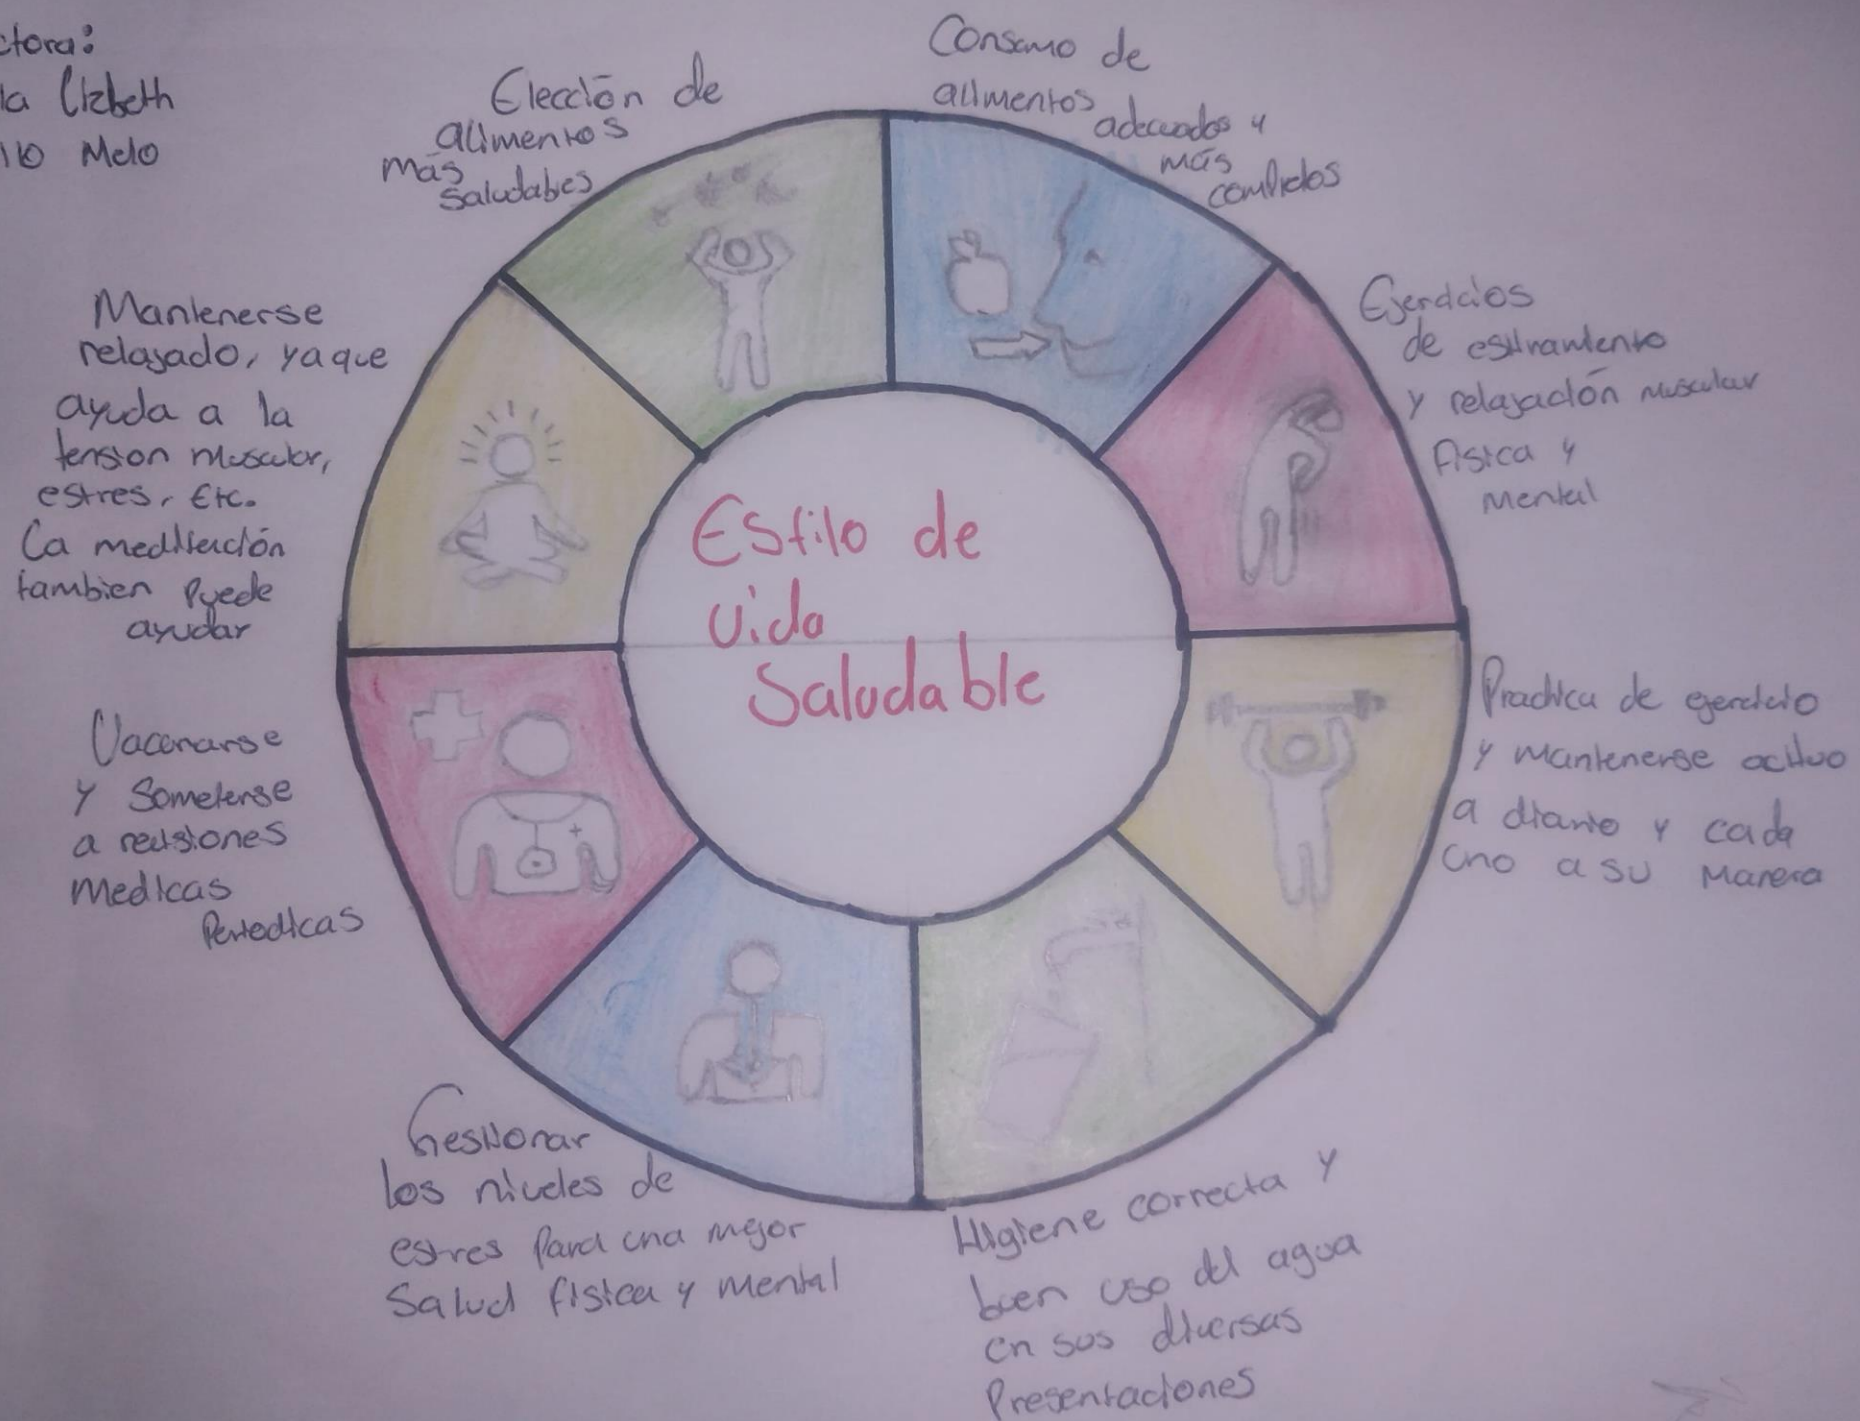 ctora:
la Lizbeth
llo Melo
Elección de
alimentos
más
saludables
Consumo de
alimentos
adecuados y
más
completos
Ejercicios
de estiramiento
y relajación muscular
fisica y
mental
Practica de ejercicio
y mantenerse activo
a diario y cada
uno a su manera
Higiene correcta y
buen uso del agua
en sus diversas
Presentaciones
Gestionar
los niveles de
estres para una mejor
Salud fisica y mental
Vacunarse
y Someterse
a revisiones
medicas
Periodicas
Mantenerse
relajado, ya que
ayuda a la
tension muscular,
estres, Etc.
La meditación
tambien Puede
ayudar
Estilo de
vida
Saludable